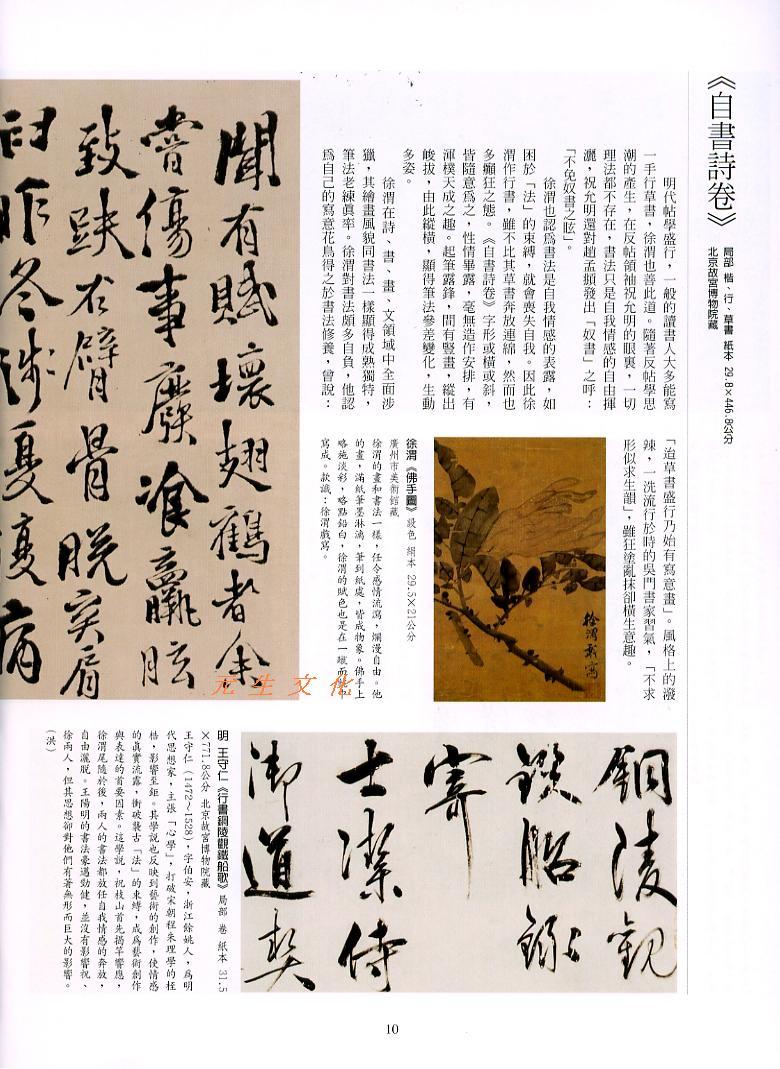 《自書詩卷》
局部 楷、行、草書 紙本 29.8×446.8公分
北京故宮博物院藏
明代帖學盛行，一般的讀書人大多能寫
一手行草書，徐渭也善此道。隨著反帖學思
潮的產生，在反帖領袖祝允明的眼裏，一切
理法都不存在，書法只是自我情感的自由揮
灑，祝允明還對趙孟頫發出「奴書」之呼：
「不免奴書之眩」。
徐渭也認爲書法是自我情感的表露，如
困於「法」的束縛，就會喪失自我。因此徐
渭作行書，雖不比其草書奔放連綿，然而也
多癲狂之態。《自書詩卷》字形或橫或斜，
皆隨意爲之，性情畢露，毫無造作安排，有
渾樸天成之趣。起筆露鋒，間有豎畫，縱出
峻拔，由此縱橫，顯得筆法參差變化，生動
多姿。
徐渭在詩、書、畫、文領域中全面涉
獵，其繪畫風貌同書法一樣顯得成熟獨特，
筆法老練眞率。徐渭對書法頗多自負，他認
爲自己的寫意花鳥得之於書法修養，曾說：
「迨草書盛行乃始有寫意畫」。風格上的潑
辣，一洗流行於時的吳門書家習氣，「不求
形似求生韻」，雖狂塗亂抹卻橫生意趣。
徐渭戲寫
徐渭《佛手圖》設色 絹本 29.5×21公分
廣州市美術館藏
徐渭的畫和書法一樣，任令感情流瀉，爛漫自由。他
的畫，滿紙筆墨淋漓，筆到紙處，皆成物象。佛手上
略施淡彩，略點鉛白，徐渭的賦色也是在一蹴而
寫成。款識：徐渭戲寫。
聞有賦壞翅鶴者余
嘗傷事廢飡羸眩
致跌右臂骨脫突肩
臼昨冬涉夏復病
元生文化
銅陵觀
鐵船錄
寄
士潔侍
御道契
明 王守仁《行書銅陵觀鐵船歌》局部 卷 紙本 31.5
×771.8公分 北京故宮博物院藏
王守仁（1472～1528），字伯安，浙江餘姚人，爲明
代思想家，主張「心學」，打破宋朝程朱理學的桎
梏，影響至鉅。其學說也反映到藝術的創作，使情感
的眞實流露，衝破襲古「法」的束縛，成爲藝術創作
與表達的首要因素。這學說，祝枝山首先揭竿響應，
徐渭尾隨於後，兩人的書法都放任自我情感的奔放，
自由灑脫。王陽明的書法豪邁勁健，並沒有影響祝、
徐兩人，但其思想卻對他們有著無形而巨大的影響。
（洪）
10